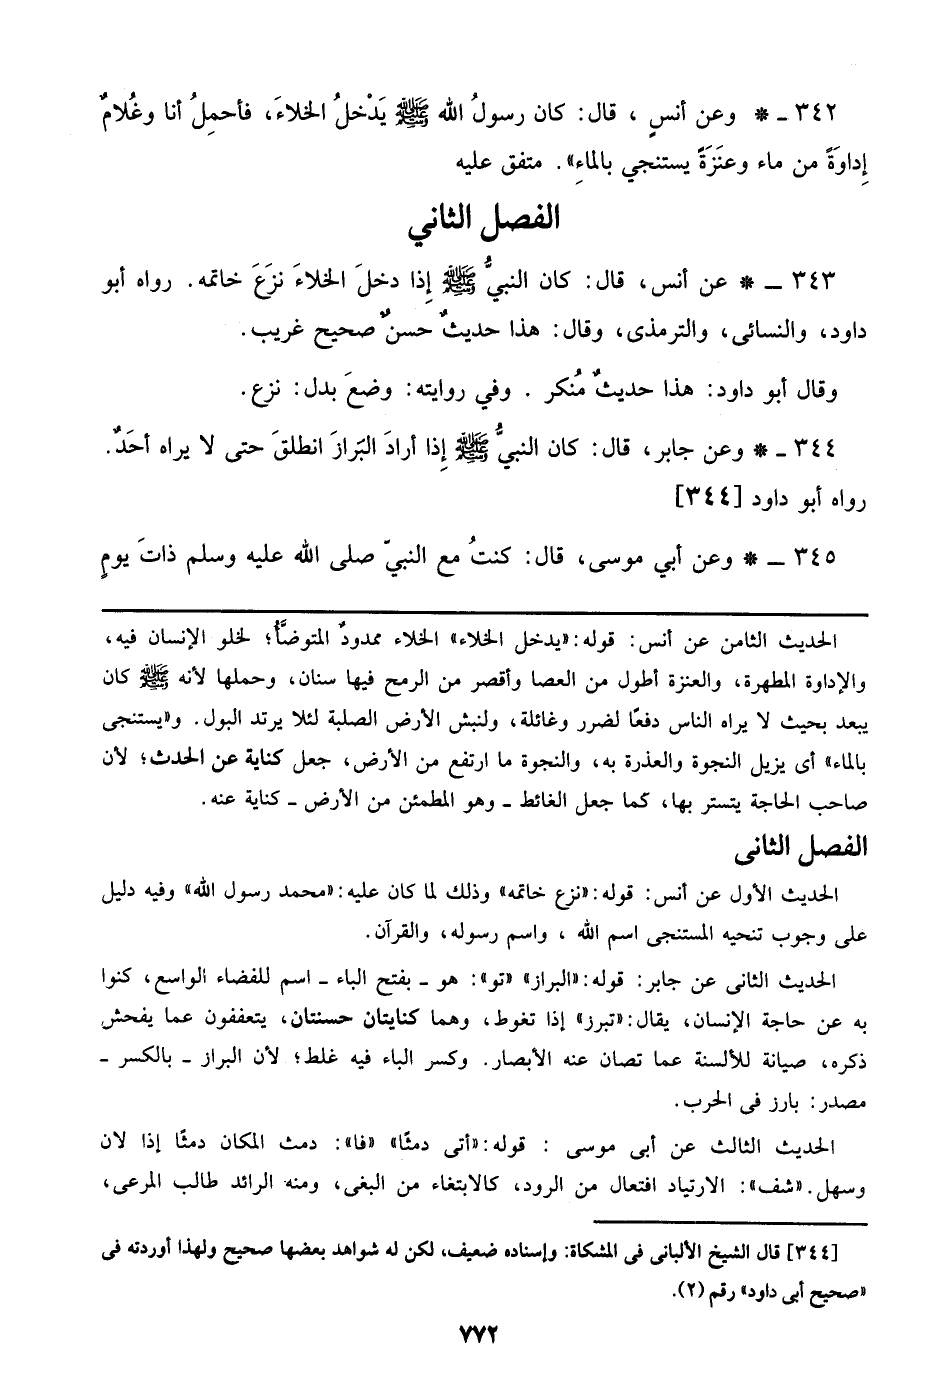 ٣٤٢ ـ * وعن أنسٍ ، قال: كان رسولُ الله ﷺ يَدْخلُ الخلاءَ، فأحمِلُ أنا وغُلامٌ
إِداوَةً من ماء وعنَزَةً يستنجي بالماءِ». متفق عليه
الفصل الثاني
٣٤٣ ـ * عن أنس، قال: كان النبيُّ ﷺ إِذا دخلَ الخلاءَ نزَعَ خاتمه. رواه أبو
داود، والنسائى، والترمذى، وقال: هذا حديثٌ حسنٌ صحيح غريب.
وقال أبو داود: هذا حديثٌ مُنكر . وفي روايته: وضعَ بدل: نزع.
٣٤٤ ـ * وعن جابر، قال: كان النبيُّ ﷺ إِذا أرادَ البَرازَ انطلقَ حتى لا يراه أحَدٌ.
رواه أبو داود [٣٤٤]
٣٤٥ ـ * وعن أبي موسى، قال: كنتُ مع النبيّ صلى الله عليه وسلم ذاتَ يومٍ
الحديث الثامن عن أنس: قوله:«يدخل الخلاء» الخلاء ممدودٌ المتوضَّأُ؛ لخلو الإنسان فيه،
والإداوة المطهرة، والعنزة أطول من العصا وأقصر من الرمح فيها سنان، وحملها لأنه ﷺ كان
يبعد بحيث لا يراه الناس دفعًا لضرر وغائلة، ولنبش الأرض الصلبة لئلا يرتد البول. و«يستنجى
بالماء» أى يزيل النجوة والعذرة به، والنجوة ما ارتفع من الأرض، جعل كناية عن الحدث؛ لأن
صاحب الحاجة يتستر بها، كما جعل الغائط ـ وهو المطمئن من الأرض ـ كناية عنه.
الفصل الثانى
الحديث الأول عن أنس: قوله:«نزع خاتمه» وذلك لما كان عليه:«محمد رسول الله» وفيه دليل
على وجوب تنحيه المستنجى اسم الله ، واسم رسوله، والقرآن.
الحديث الثانى عن جابر: قوله:«البراز» «تو»: هو ـ بفتح الباء ـ اسم للفضاء الواسع، كنوا
به عن حاجة الإنسان، يقال:«تبرز» إذا تغوط، وهما كنايتان حسنتان، يتعففون عما يفحش
ذكره، صيانة للألسنة عما تصان عنه الأبصار. وكسر الباء فيه غلط؛ لأن البراز ـ بالكسر ـ
مصدر: بارز فى الحرب.
الحديث الثالث عن أبى موسى : قوله:«أتى دمثًا» «فا»: دمث المكان دمثًا إذا لان
وسهل.«شف»: الارتياد افتعال من الرود، كالابتغاء من البغى، ومنه الرائد طالب المرعى،
[٣٤٤] قال الشيخ الألبانى فى المشكاة: وإسناده ضعيف، لكن له شواهد بعضها صحيح ولهذا أوردته فى
«صحيح أبى داود» رقم (٢).
٧٧٢